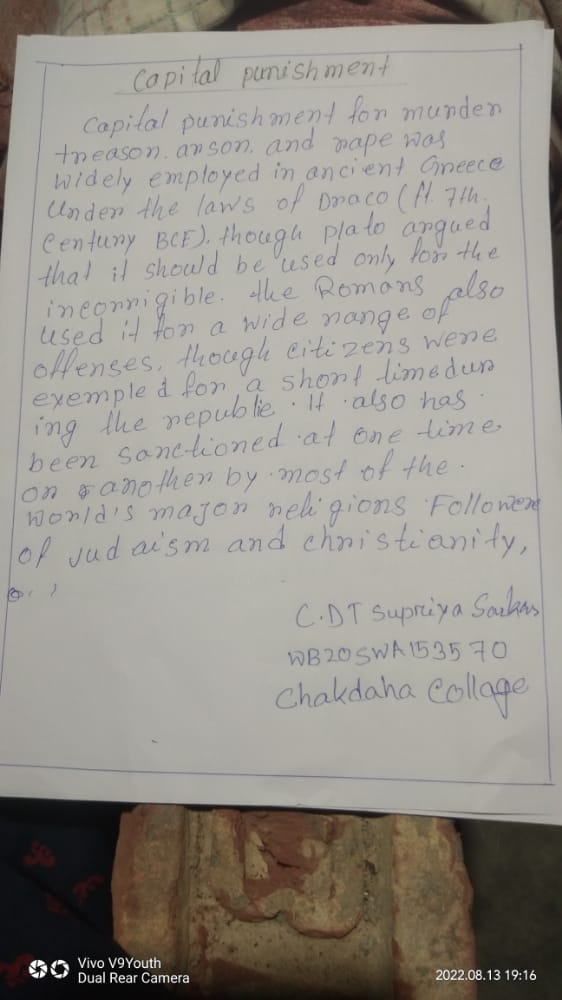 Capital punishment
Capital punishment for murder
treason. arson. and rape was
widely employed in ancient Greece
Under the laws of Draco (fl. 7th.
Century BCE). though plato argued
that it should be used only for the
incorrigible. the Romans also
used it for a wide range of
offenses, though citizens were
exempled for a short timedur
ing the republic. It also has
been sanctioned at one time
or another by most of the.
world's major religions Followere
of Judaism and christianity,
C.DT Supriya Sarkar
WB20SWA153570
Chakdaha Collage
Vivo V9Youth
Dual Rear Camera
2022.08.13 19:16